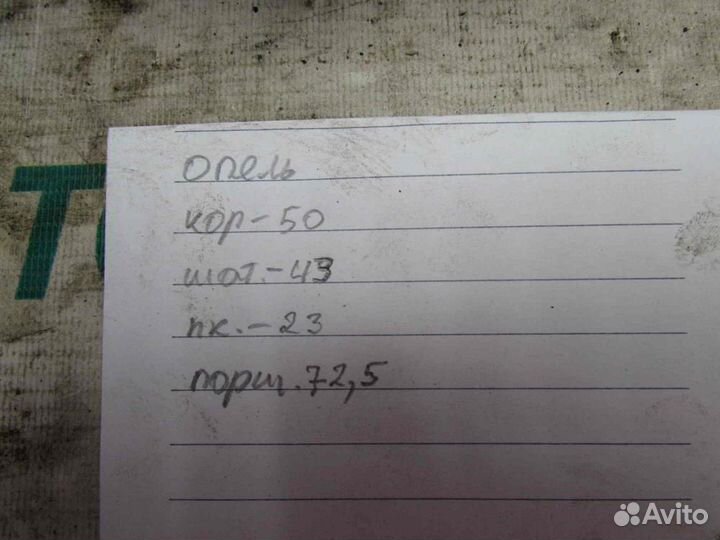 Опель
кор-50
шат.-43
пк.-23
порш.72,5
Avito